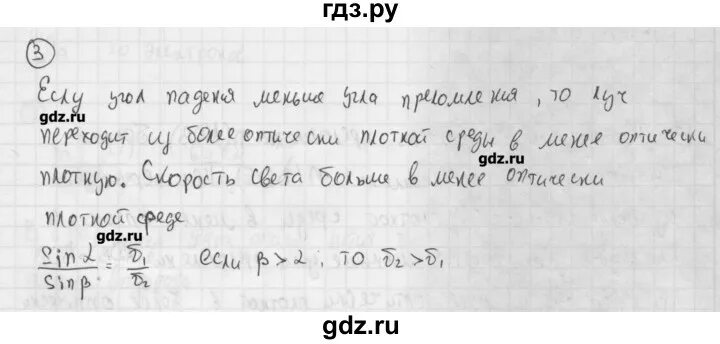 гдз.ру
③
Еслу угол паденя меньше угла преломления, то луч
gdz.ru
переходит из более оптически плотной среды в менее оптически
gdz.ru
плотную. Скорость света больше в менее оптически
плотной среде
gdz.ru
sin α / sin β = υ₁ / υ₂ если β > α, то υ₂ > υ₁
gdz.ru